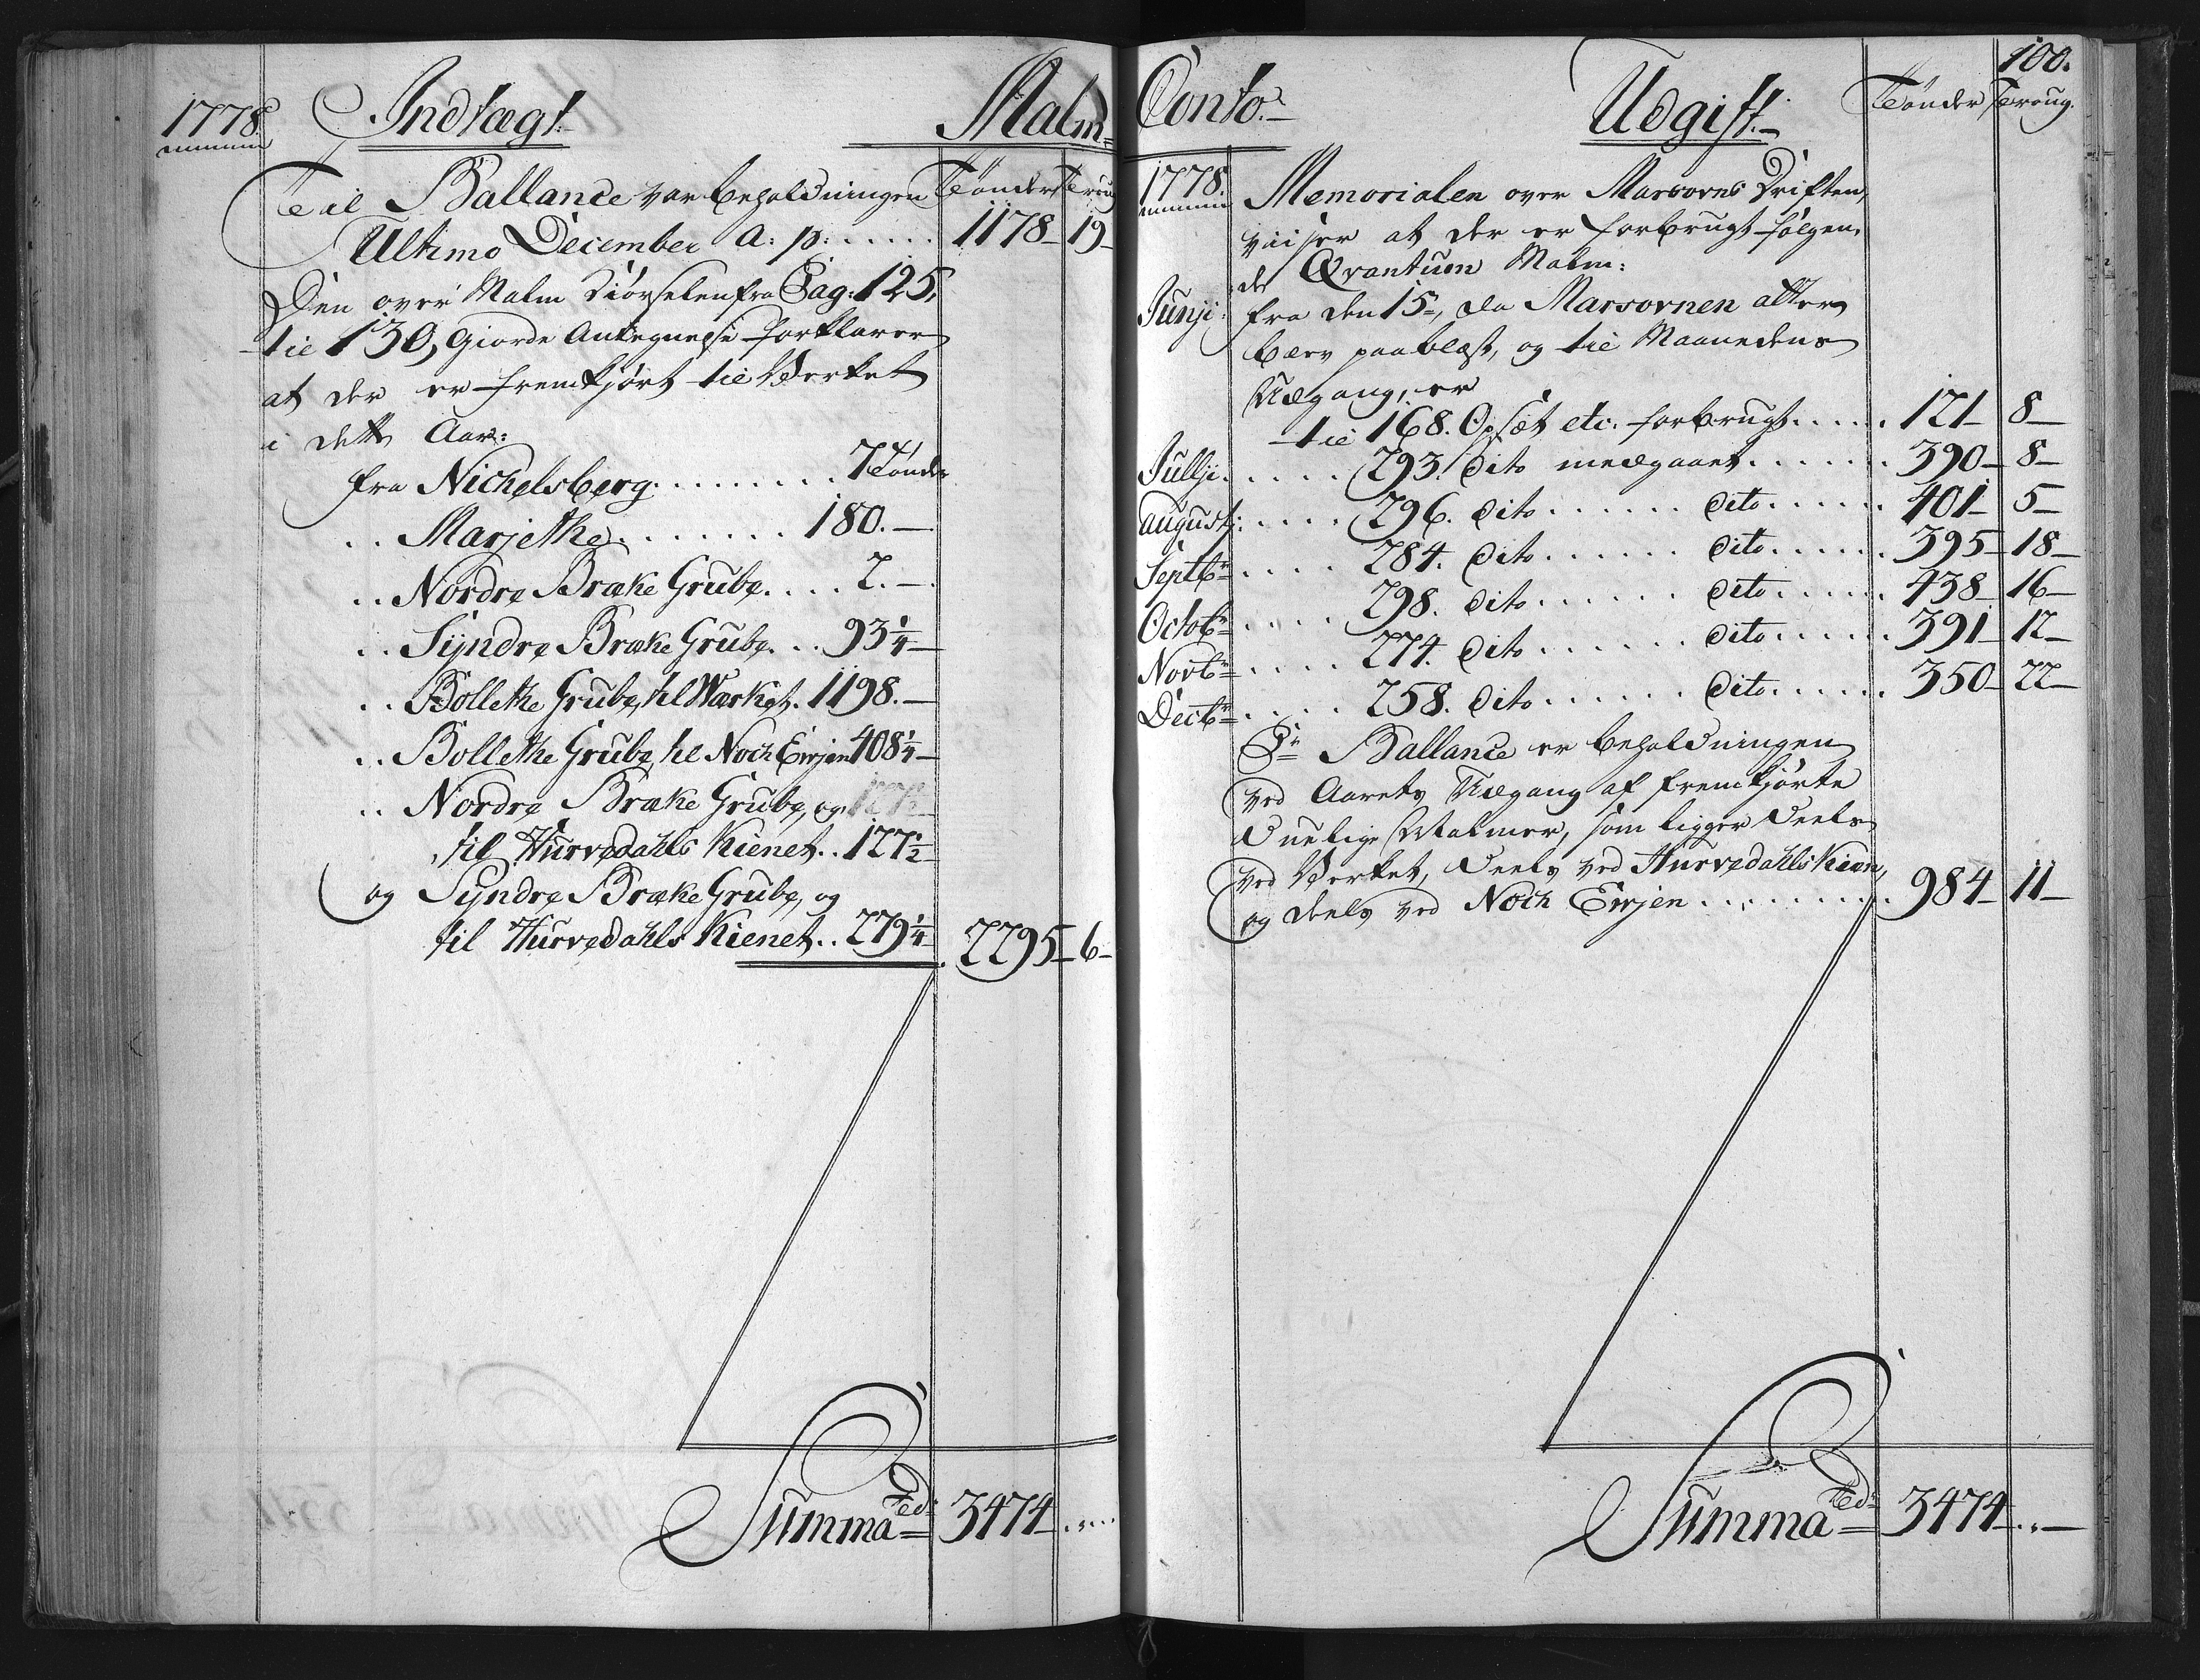 1778.
Indtægt.
Malm
Til Ballance var beholdningen
Tønder
Ultimo December a: p: ..... 1178 19
Den over Malm Kiørselen fra Pag: 125,
til 130, giorde Antegnelse forklarer
at der er fremkjørt til Verket
i dette Aar:
fra Nichelsberg ......... 7 Tønder
.. Marjethe ........ 180.—
.. Nordre Bræke Grube .... 2.—
.. Syndre Bræke Grube ... 93 1/4
.. Bollethe Grube, til Wærket. 1198.—
.. Bollethe Grube, til Noch Eirjen 408 1/4
.. Nordre Bræke Grube, og
til Hurvedahls Kienet .. 127 1/2
og Syndre Bræke Grube, og
til Hurvedahls Kienet .. 279 1/4 2295 6
Summa Tdr 3474 ....
100.
Conto.
Udgift.
Tønder Troug.
1778.
Memorialen over Marsovns Driften,
viiser at der er forbrugt følgen-
de Qvantum Malm:
Junji: fra den 15de, da Marsovnen atter
blev paablæst, og til Maanedens
Udgang, er
til 168. Opsæt etc. forbrugt ..... 121 8
Jullji ..... 293. dito medgaaet ....... 390 8
Augustj: .... 296. dito ...... dito ...... 401 5
Septbr .... 284. dito ...... dito ...... 395 18
Octobr .... 298. dito ...... dito ..... 438 16
Novbr .... 274. dito ...... dito ...... 391 12
Decbr .... 258. dito ...... dito ...... 350 22
Pr Ballance er beholdningen
ved Aarets Udgang af fremkjørte
Duelige Malmer, som ligger deels
ved Verket, deels ved Hurvedahls Kiæn,
og deels ved Noch Eirjen .......... 984 11
Summa Tdr 3474 ...